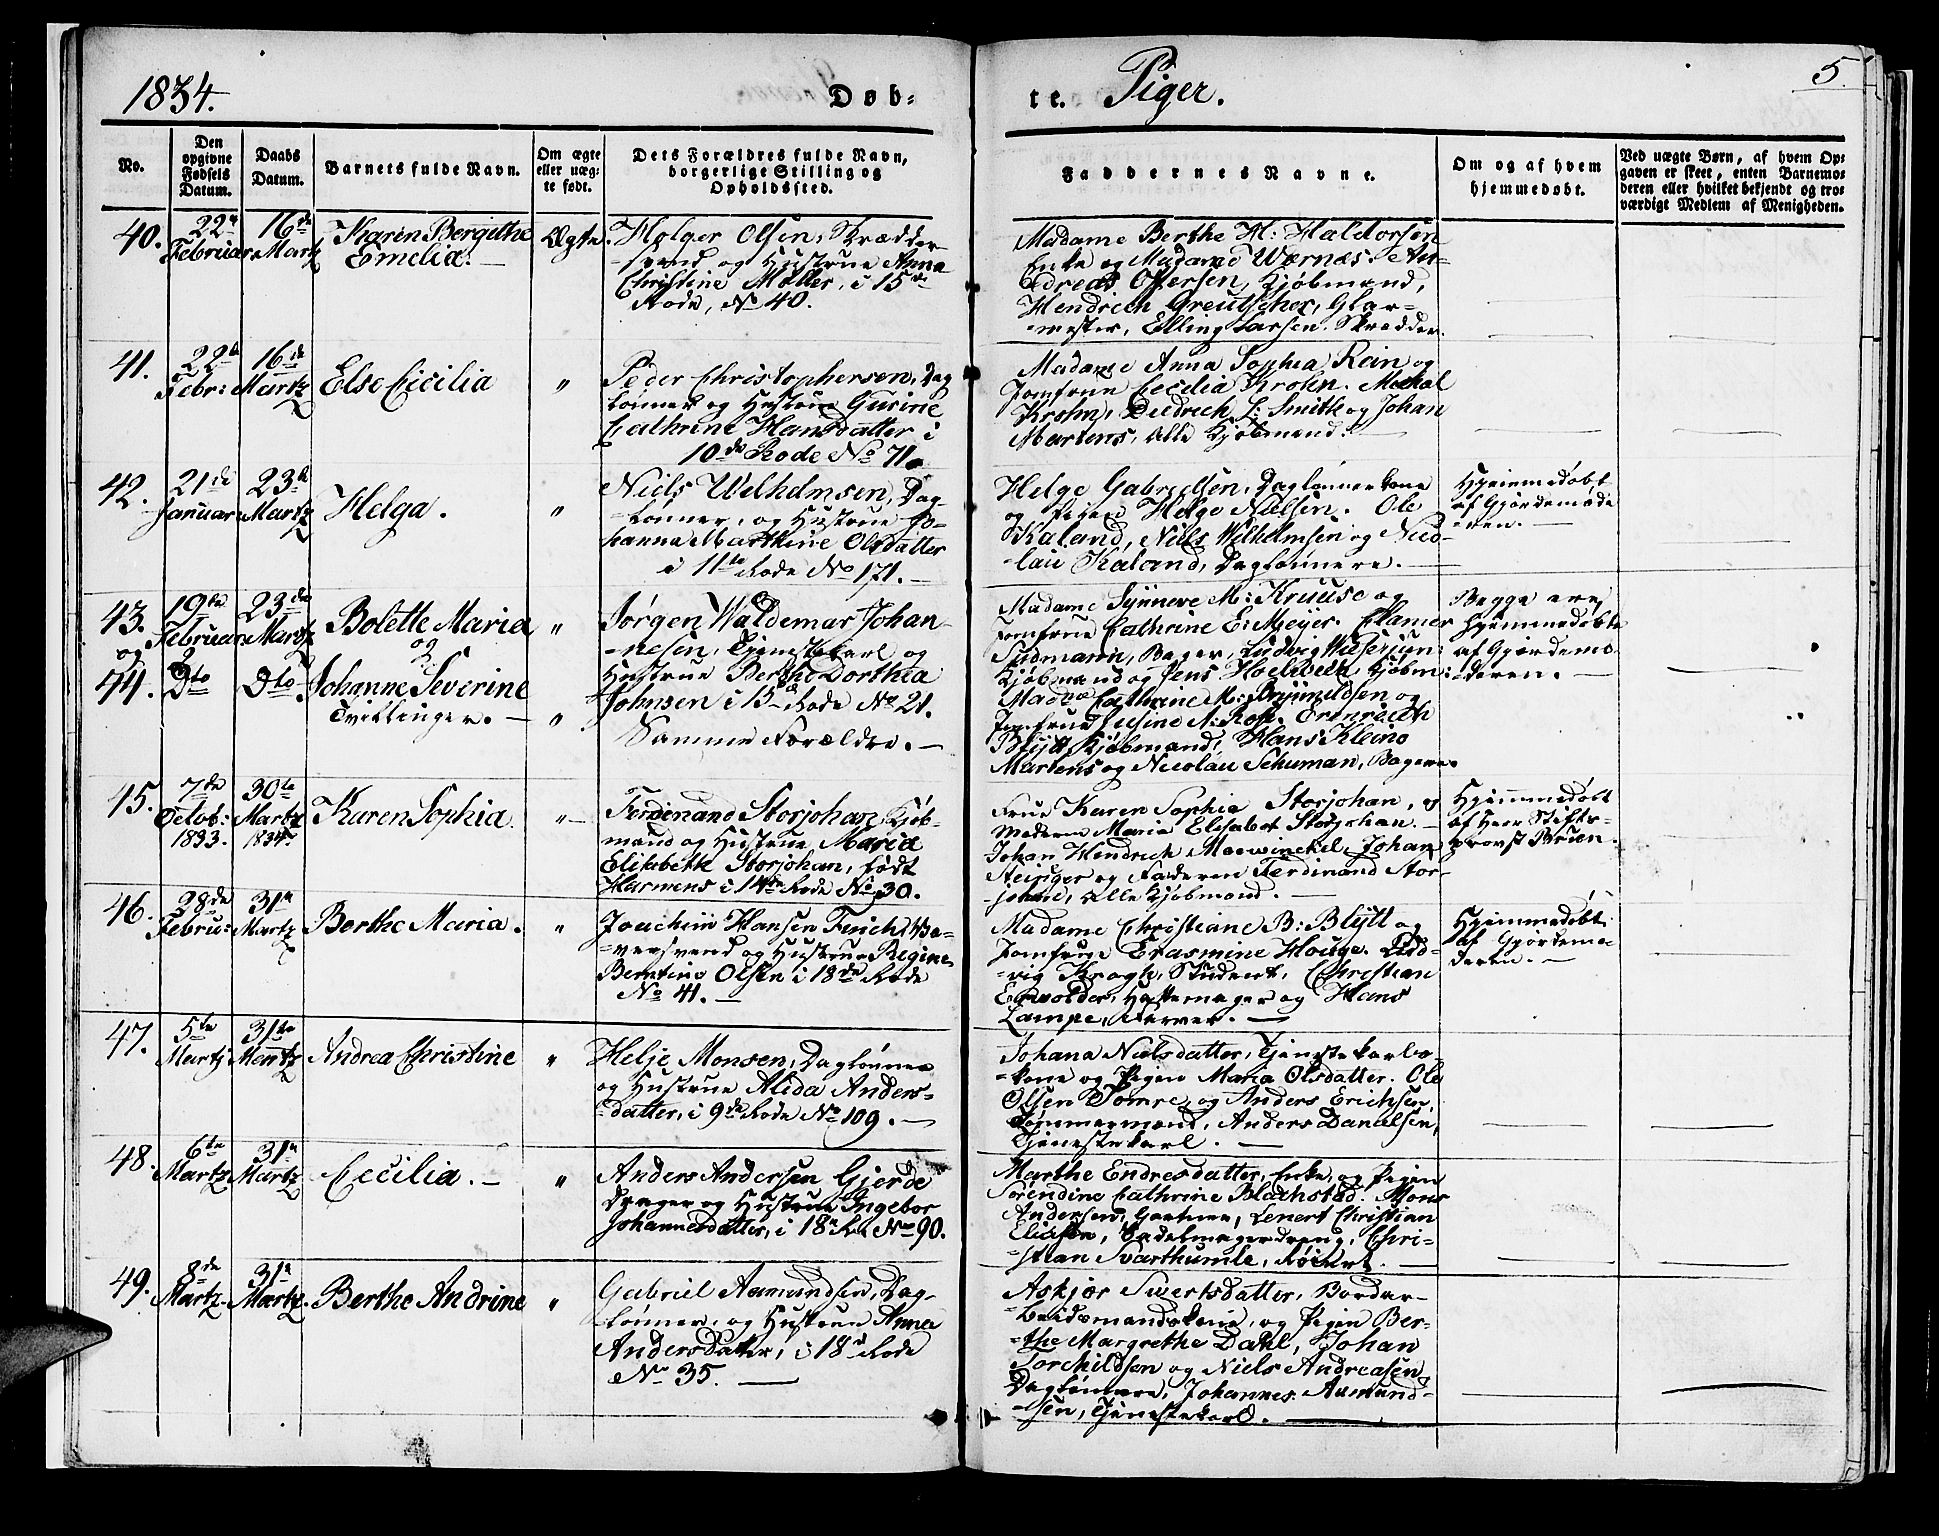 1834.
Døb-
te. Piger.
5.
No.
Den opgivne Fødsels Datum.
Daabs Datum.
Barnets fulde Navn.
Om ægte eller uægte født.
Dets Forældres fulde Navn, borgerlige Stilling og Opholdssted.
Faddernes Navne.
Om og af hvem hjemmedøbt.
Ved uægte Børn, af hvem Opgaven er skeet, enten Barnemoderen eller hvilket bekjendt og troværdigt Medlem af Menigheden.
40. 22de Februar 16de Martz
Karen Bergitte
Emelia. —
Ægte.
Holger Olsen, Skrædder-
svend og Hustrue Anna
Christine Møller, i 15de
Rode, No 40.
Madame Berthe H: Haldorsen
Enke og Madame Wærnæs. An-
dreas Ottersen, Kjøbmand,
Hendrich Greutscher, Glar-
mester, Elling Larsen. Skrædder.
41. 22de Febr: 16de Martz
Else Cicilia
"
Peder Christophersen, Dag
lønner og Hustrue Gurine
Cathrine Hansdatter i
10de Rode No 71.
Madame Anna Sophia Rein og
Jomfrue Cecilia Krohn. Mechal
Krohn, Diedrich L: Smith og Johan
Martens, Alle Kjøbmænd. —
42. 21de Januar 23de Martz
Helga.
"
Niels Welhelmsen, Dag-
lønner, og Hustrue Jo-
hanna Marthine Olsdatter
i 11te Rode No 171. —
Helge Gabrielsen, Daglønnerkone
og Pigen Helge Nielsen. Ole
Kaland, Niels Wilhelmsen og Nico-
lai Kaland, Daglønnere. —
Hjemmedøbt
af Gjordemode
ren. —
43. 19de Februar 23de Martz
og
44. Dto Dto
Bolette Maria
og
Johanne Severine
Tvillinger. —
"
"
Jørgen Waldemar Johan-
nesen, Tjenestekarl og
Hustrue Berthe Dorthea
Johnsen i 15de Rode No 21.
Samme Forældre. —
Madame Synneve M: Kruuse og
Jomfrue Cathrine E: Meyer. Clamer
Sudmann, Bager, Ludvig
Kjøbmand og Jens Kjøbm:
Mad Cathrine M: Brynnildsen og
Jomfrue M: Ross.
Blytt Kjøbmand, Hans Kleino
Martens og Nicolai Schuman, Bagere.
Begge ere
hjemmedøbte
af Gjordemo-
deren. —
45. 7de Octob: 1833. 30te Martz 1834.
Karen Sophia
" —
Ferdinand Storjohan, Kjøb-
mand og Hustrue Maria
Elisabeth Storjohan, født
Harmens i 14de Rode No 30.
Frue Karen Sophia Storjohan, og
Moderen Maria Elisabet Storjohan. —
Johan Hendrich Meewinckel, Johan
og Faderen Ferdinand Stor-
johan, Alle Kjøbmænd. —
Hjemmedøbt
af Herr Stifts-
provst Bruen.
46. 28de Febru: 31te Martz
Berthe Maria.
"
Joachim Hansen
versvend og Hustrue Regine
Berntine Olsen i 18de Rode
No 41. —
Madame Christiane B: Blytt og
Jomfrue Erasmine Houge. Lud-
vig Krogh, Student, Christian
Hattemager og Hans
Lampe, Farver. —
Hjemmedøbt
af Gjordemo-
deren. —
47. 5te Martz 31te Martz
Andrea Christine
"
Helje Monsen, Daglønner
og Hustrue Alida Anders-
datter, i 9de Rode No 109. —
Johana Nielsdatter, Tjenestekarls-
kone og Pigen Maria Olsdatter. Ole
Olsen Tomre, og Anders Erichsen,
Tømmermænd, Anders Danielsen,
Tjenestekarl. —
48. 6te Martz 31te Martz
Cecilia. —
"
Anders Andersen Gjerde
Drager og Hustrue Ingebor
Johannesdatter, i 18de Rode No 90.
Marthe Endresdatter, Enke, og Pigen
Sørendine Cathrine Blachstad. Mons
Andersen, Gartner, Lenert Christian
Eliasen, Sadelmagerdreng, Chri-
stian Svarthumle, —
49. 8de Martz. 31te Martz.
Berthe Andrine
"
Gabriel Aamundsen, Dag-
lønner, og Hustrue Anna
Andersdatter, i 18de Rode
No 35. —
Askjær Siwertsdatter,
beidsmandskone, og Pigen Ber-
the Margrethe Dahl, Johan
Torchildsen og Niels Andreasen
Daglønnere, Johannes Aamund-
sen, Tjenestekarl. —